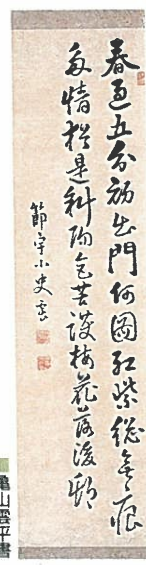 春過五分初出門何圖紅紫総無痕
多情猶是斜陽色苦護梅花落後邨
節宇小史雲
亀山雲平書